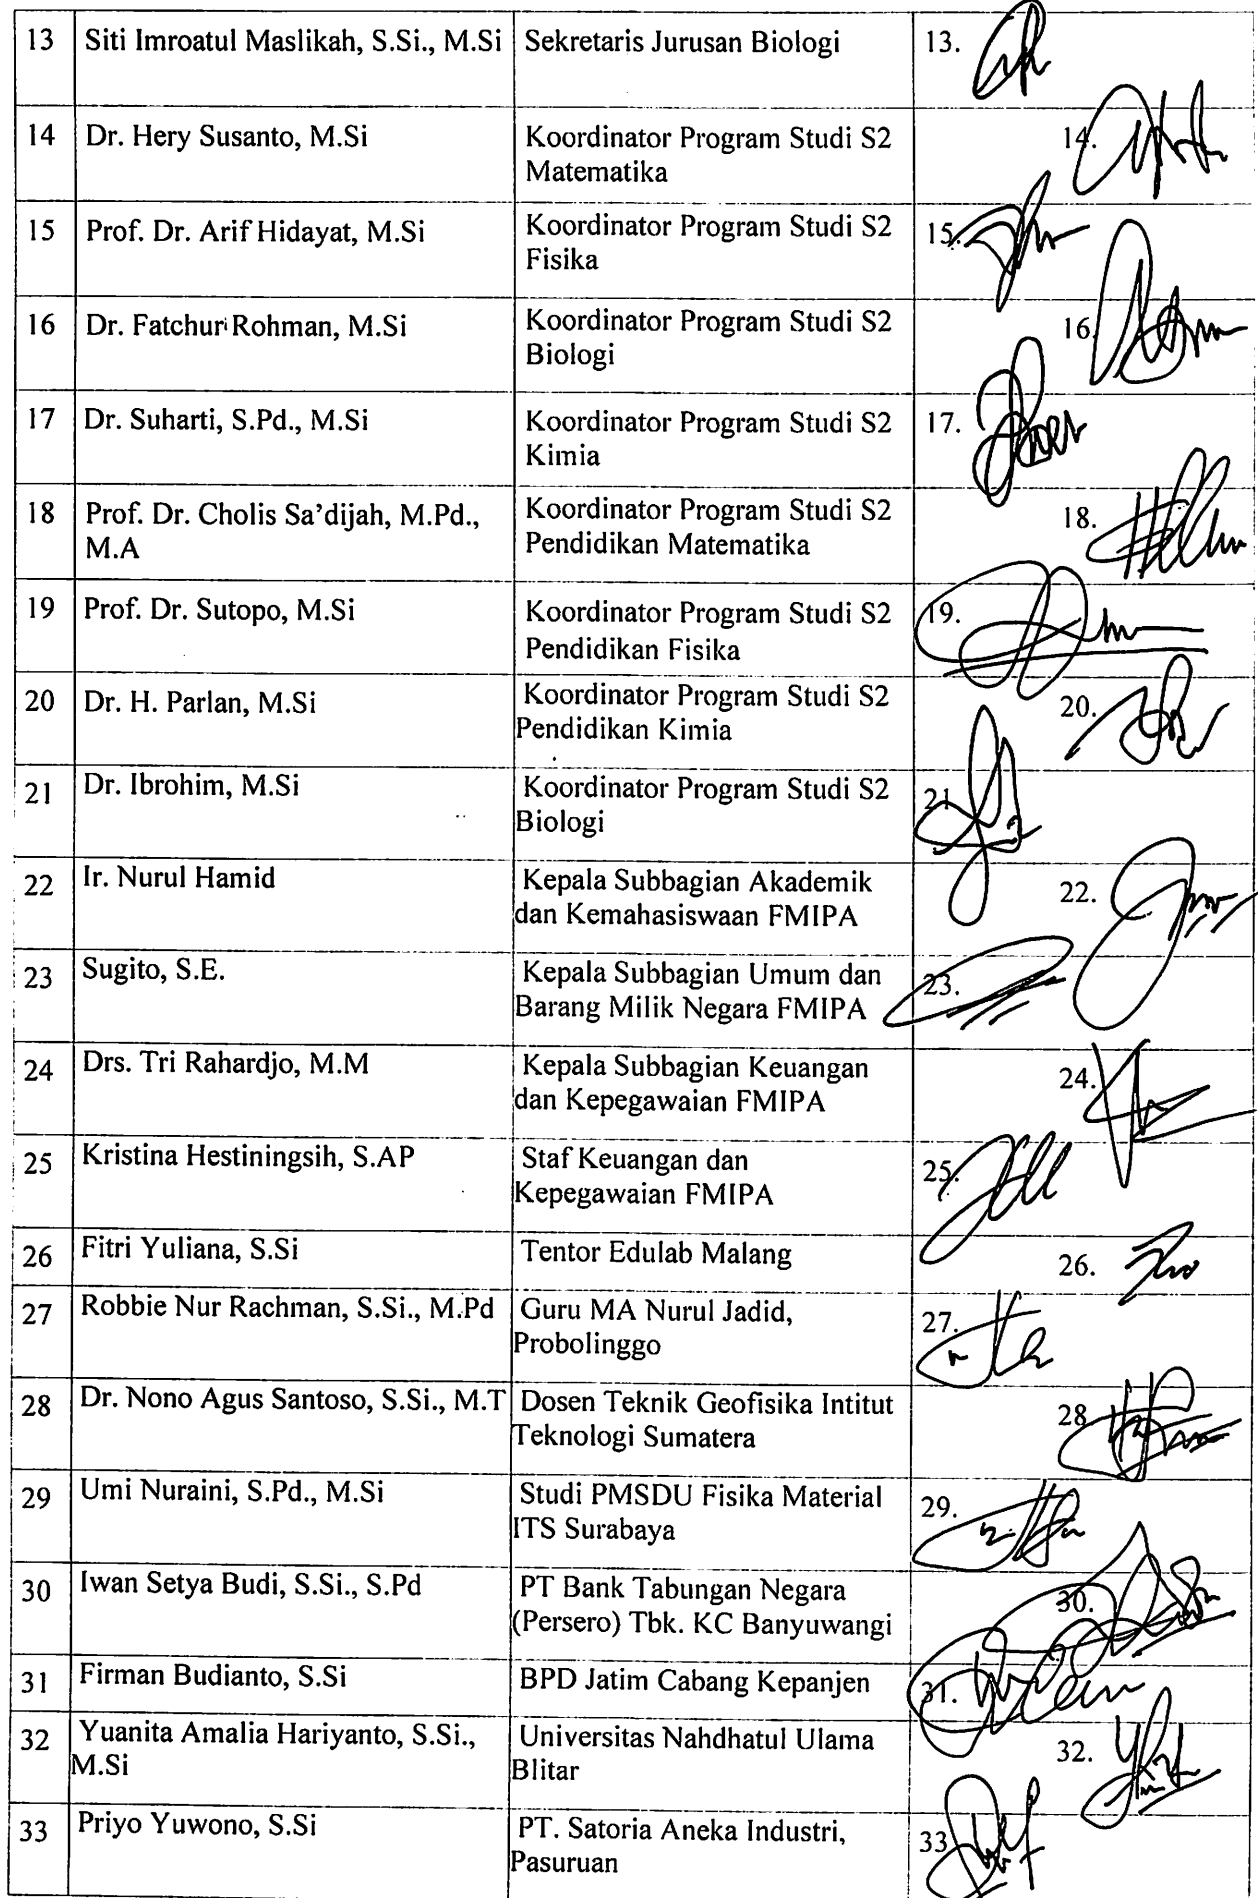 13 Siti Imroatul Maslikah, S.Si., M.Si Sekretaris Jurusan Biologi 13.
14 Dr. Hery Susanto, M.Si Koordinator Program Studi S2 14.
Matematika
15 Prof. Dr. Arif Hidayat, M.Si Koordinator Program Studi S2 15.
Fisika
16 Dr. Fatchur Rohman, M.Si Koordinator Program Studi S2 16.
Biologi
17 Dr. Suharti, S.Pd., M.Si Koordinator Program Studi S2 17.
Kimia
18 Prof. Dr. Cholis Sa’dijah, M.Pd., Koordinator Program Studi S2 18.
M.A Pendidikan Matematika
19 Prof. Dr. Sutopo, M.Si Koordinator Program Studi S2 19.
Pendidikan Fisika
20 Dr. H. Parlan, M.Si Koordinator Program Studi S2 20.
Pendidikan Kimia
21 Dr. Ibrohim, M.Si Koordinator Program Studi S2 21
Biologi
22 Ir. Nurul Hamid Kepala Subbagian Akademik 22.
dan Kemahasiswaan FMIPA
23 Sugito, S.E. Kepala Subbagian Umum dan 23.
Barang Milik Negara FMIPA
24 Drs. Tri Rahardjo, M.M Kepala Subbagian Keuangan 24.
dan Kepegawaian FMIPA
25 Kristina Hestiningsih, S.AP Staf Keuangan dan 25.
Kepegawaian FMIPA
26 Fitri Yuliana, S.Si Tentor Edulab Malang 26.
27 Robbie Nur Rachman, S.Si., M.Pd Guru MA Nurul Jadid, 27.
Probolinggo
28 Dr. Nono Agus Santoso, S.Si., M.T Dosen Teknik Geofisika Intitut 28
Teknologi Sumatera
29 Umi Nuraini, S.Pd., M.Si Studi PMSDU Fisika Material 29.
ITS Surabaya
30 Iwan Setya Budi, S.Si., S.Pd PT Bank Tabungan Negara 30.
(Persero) Tbk. KC Banyuwangi
31 Firman Budianto, S.Si BPD Jatim Cabang Kepanjen 31.
32 Yuanita Amalia Hariyanto, S.Si., Universitas Nahdhatul Ulama 32.
M.Si Blitar
33 Priyo Yuwono, S.Si PT. Satoria Aneka Industri, 33
Pasuruan